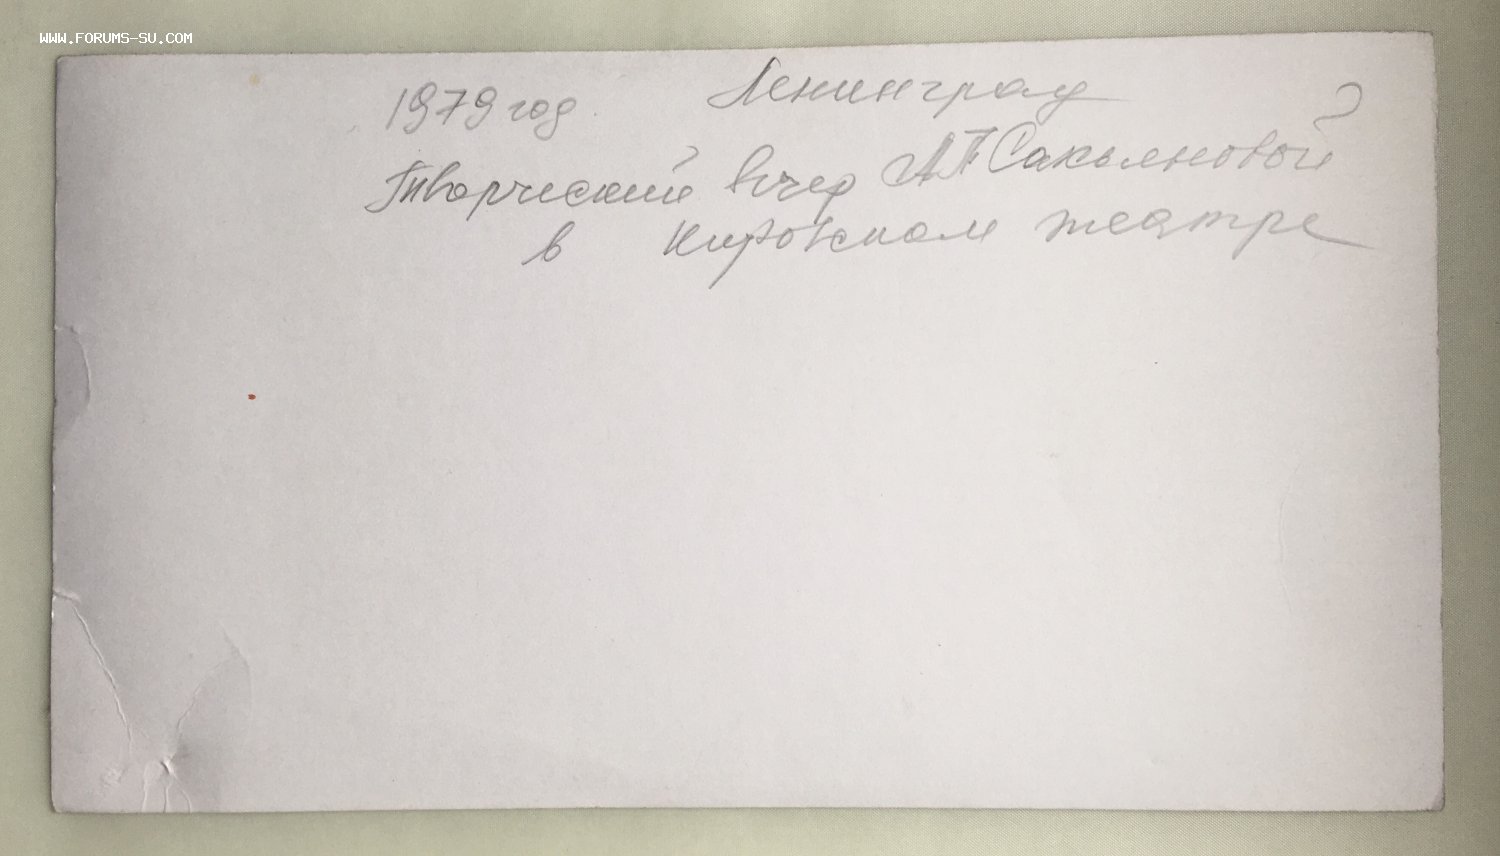 WWW.FORUMS-SU.COM
1979 год Ленинград
Творческий вечер А П Сакьяновой
в Кировском театре